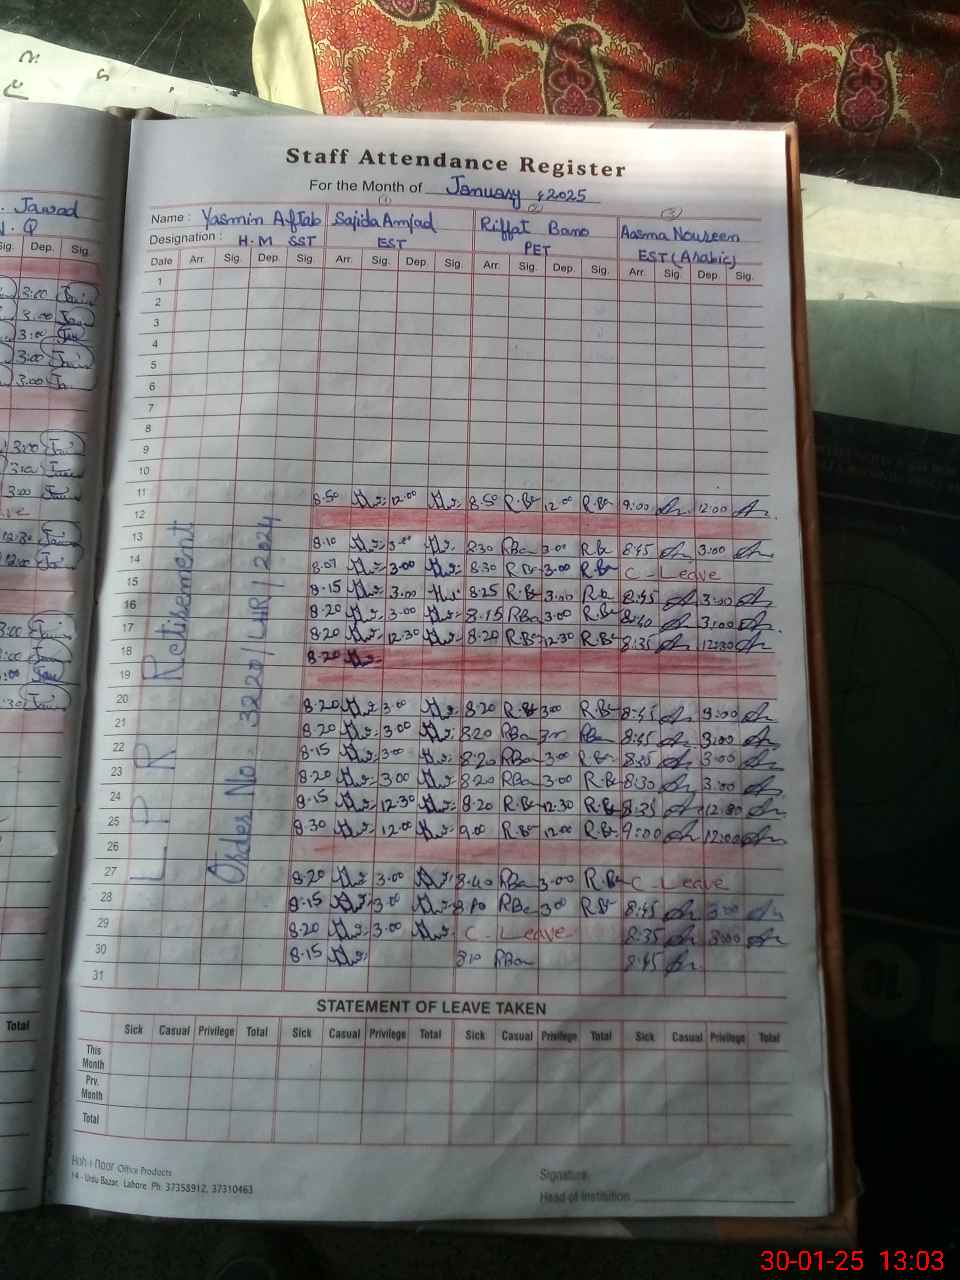 Staff Attendance Register
For the Month of January 2025
Name : Yasmin Aftab Sajida Amjad Riffat Bano Aasma Noureen
Designation : H.M SST EST PET EST (Arabic)
Date Arr. Sig. Dep. Sig. Arr. Sig. Dep. Sig. Arr. Sig. Dep. Sig. Arr. Sig. Dep. Sig.
1
2
3
4
5
6
7
8
9
10
11 8.50 12.00 8.50 R.B 12.00 R.B 9:00 12:00
12
13 8.10 3.00 8.30 RBa 3.00 RB 8:45 3:00
14 8.07 3.00 8.30 RB 3.00 R.B C-Leave
15 8.15 3.00 8.25 R.B 3.00 8:45 3:00
16 8.20 3.00 8.15 RBa 3.00 R.B 8:40 3:00
17 8.20 12.30 8.20 R.B 12.30 R.B 8:35 12:30
18 8.20
19
20 8.20 3.00 8.20 R.B 3.00 R.B 8:45 3:00
21 8.20 3.00 8.20 RBa 8:45 3:00
22 8.15 3.00 8.20 RBa 3.00 R.B 8:35 3:00
23 8.20 3.00 8.20 RBa 3.00 R.B 8:30 3:00
24 8.15 12.30 8.20 R.B 12.30 R.B 8:35 12:30
25 8.30 12.00 9.00 R.B 12.00 R.B 9:00 12:00
26
27 8.20 3.00 8.40 RBa 3.00 R.B C-Leave
28 8.15 3.00 RBa 3.00 8:45 3:00
29 8.20 3.00 C-Leave 8:35 3:00
30 8.15 8.10 RBa 8:45
31
L P R Retirement
Order No 3220/LHR/2024
STATEMENT OF LEAVE TAKEN
Sick Casual Privilege Total Sick Casual Privilege Total Sick Casual Privilege Total Sick Casual Privilege Total
This Month
Prv. Month
Total
Koh-i-Noor Office Products
14 - Urdu Bazar, Lahore. Ph: 37358912, 37310463
Signature
Head of Institution
Jawad
Sig. Dep. Sig.
3:00
3:00
3:00
3:00
3:00
3:00
3:00
3:00
12:30
12:00
3:00
Total
30-01-25 13:03